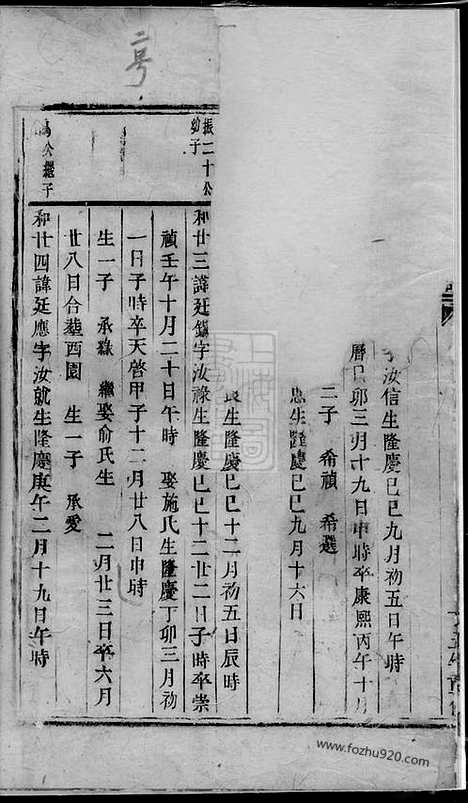 字汝信生隆慶己巳九月初五日午時
曆己卯三月十九日申時卒康熙丙午十月
二子　希禎　希選
忠生隆慶己巳九月十六日
良生隆慶己巳十二月初五日辰時
振二十公
幼子
和廿三諱廷鑛字汝祿生隆慶己巳十二廿二日子時卒崇
禎壬午十月二十日午時　娶施氏生隆慶丁卯三月初
一日子時卒天啓甲子十二月廿八日申時
生一子　承祿　繼娶俞氏生　二月廿三日卒六月
廿八日合葬西園　生一子　承愛
公繼子
和廿四諱廷應字汝就生隆慶庚午二月十九日午時
二号
www.fozhu920.com